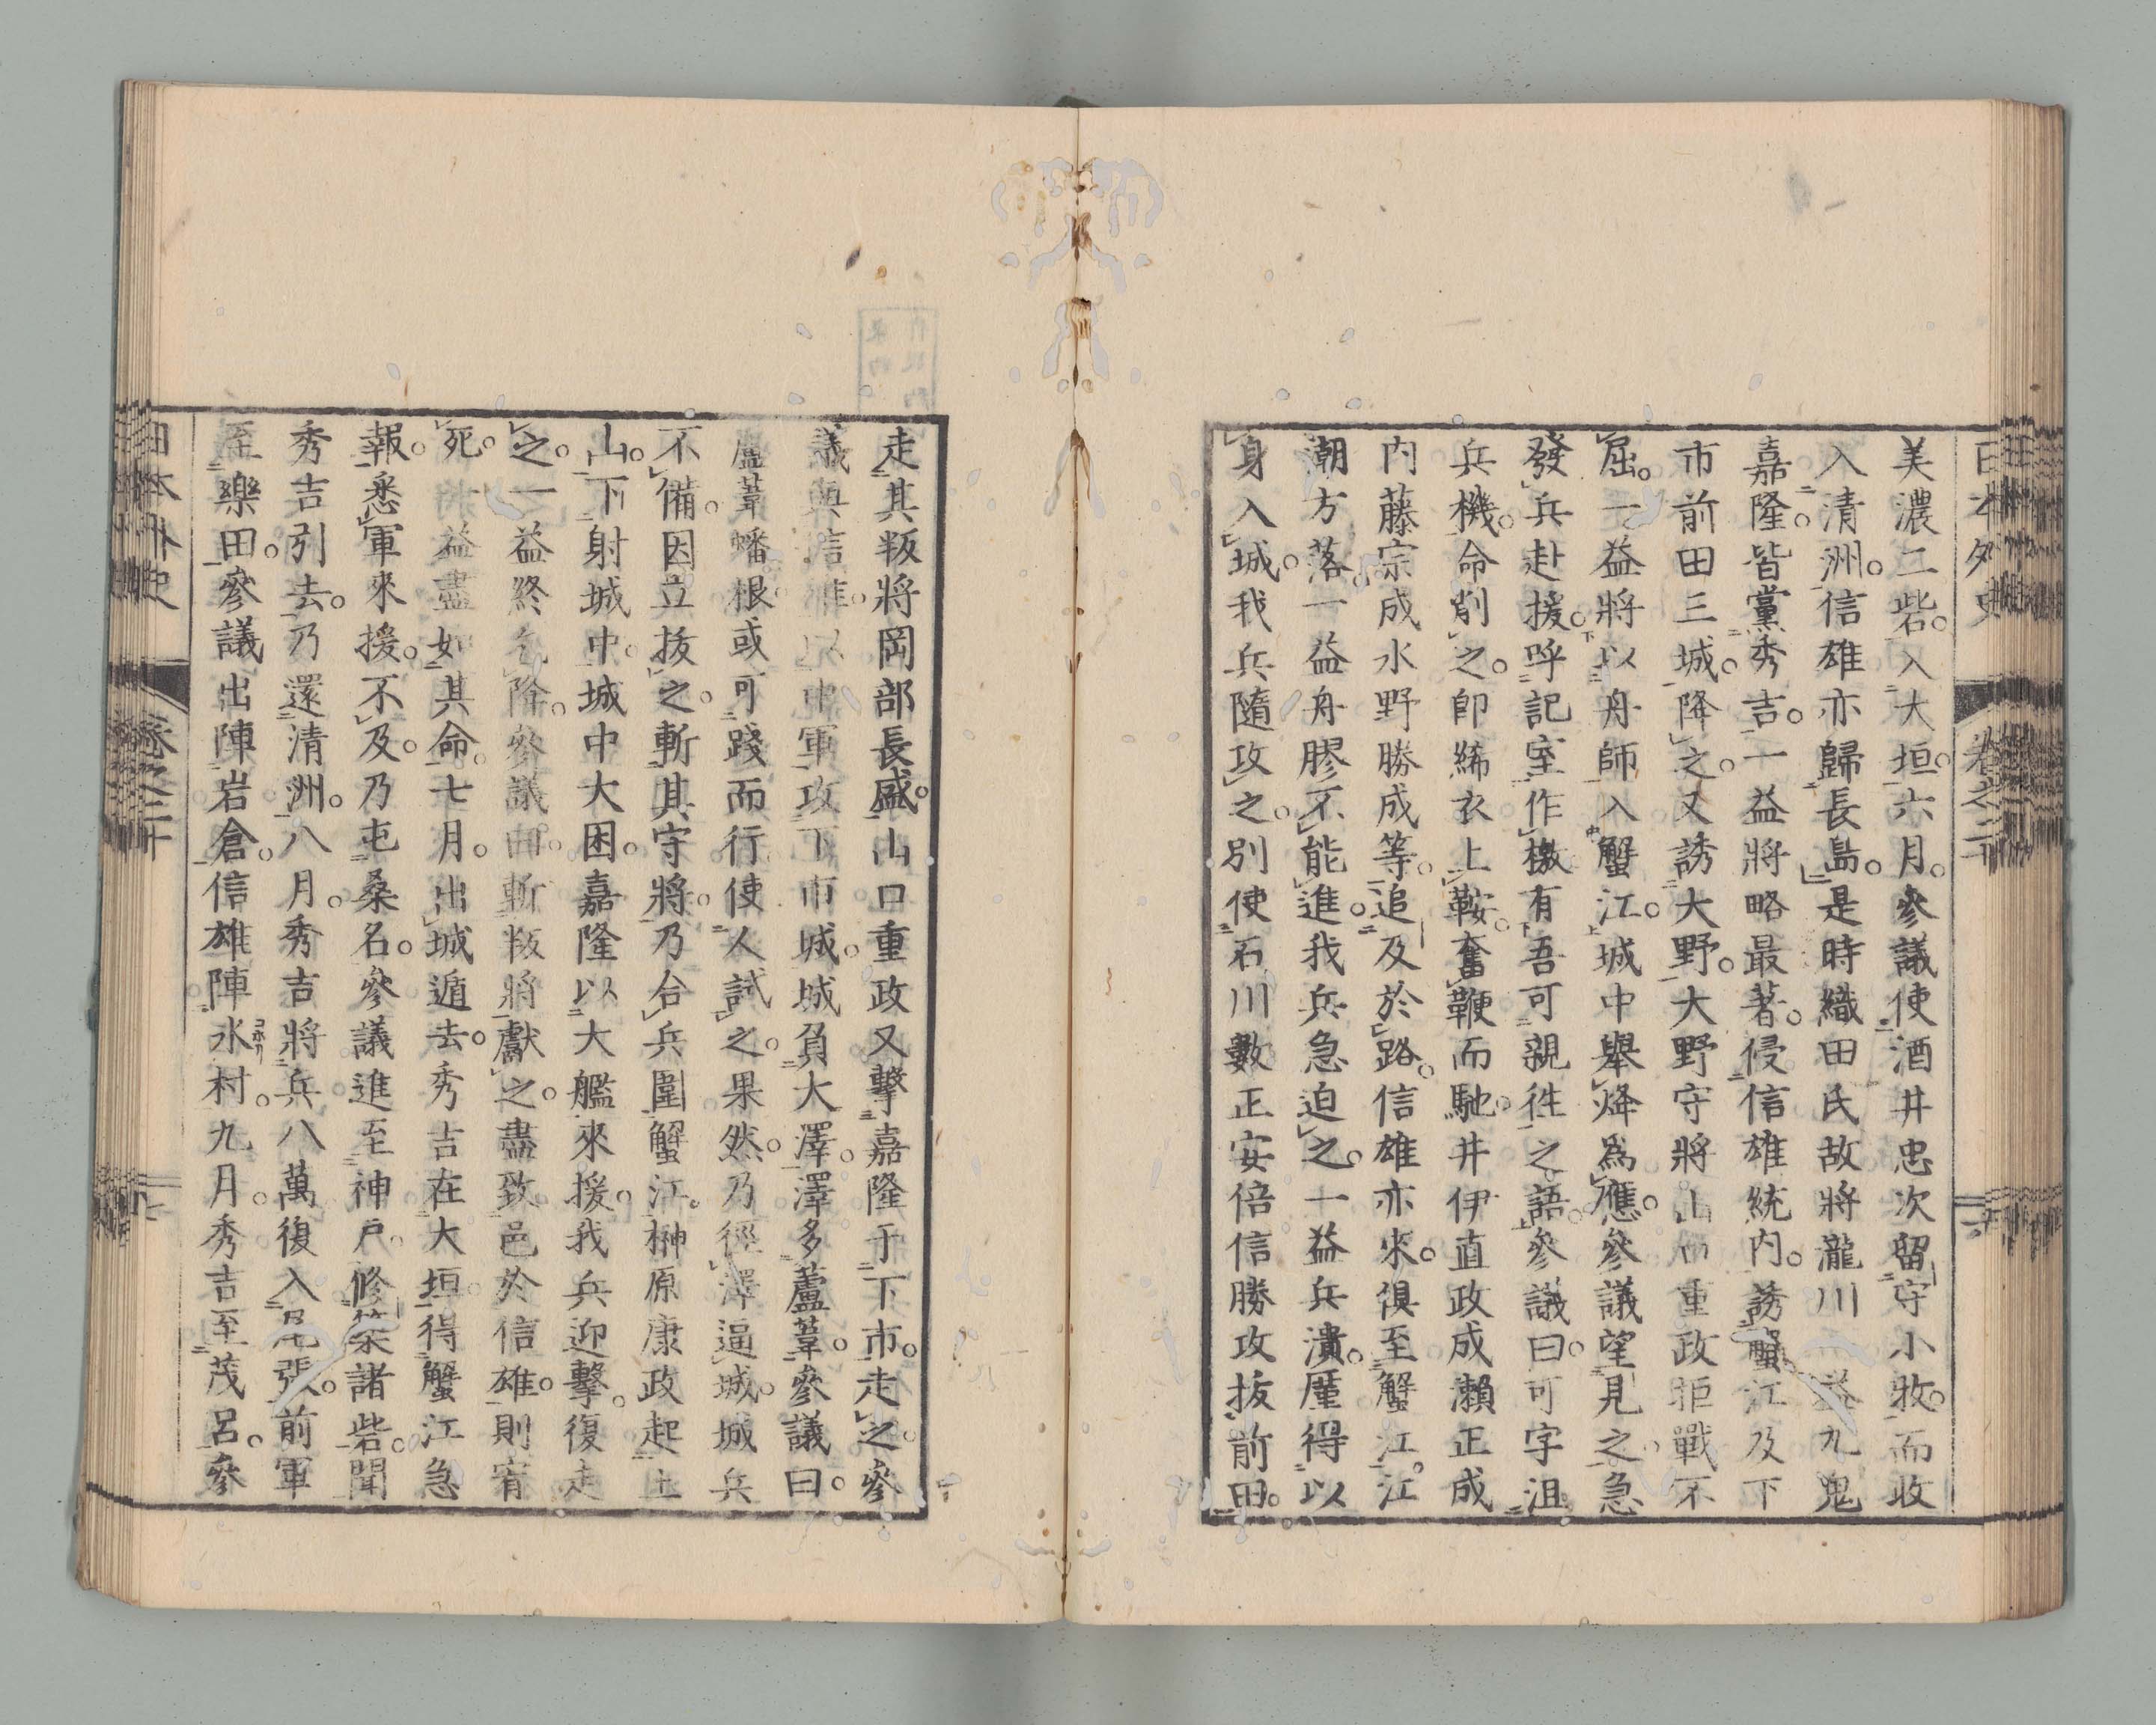 日本外史 卷之二十 六
美濃二砦。入大垣。六月。參議使酒井忠次留守小牧。而收
入清洲。信雄亦歸長島。是時織田氏故將瀧川一益九鬼
嘉隆。皆黨秀吉。一益將略最著。侵信雄統內。誘蟹江及下
市前田三城。降之。又誘大野。大野守將山口重政拒戰不
屈。一益將以舟師入蟹江。城中舉烽爲應。參議望見之。急
發兵赴援。呼記室作檄。有吾可親往之語。參議曰。可字沮
兵機。命削之。卽絺衣上鞍。奮鞭而馳。井伊直政成瀨正成
內藤宗成水野勝成等。追及於路。信雄亦來。俱至蟹江。江
潮方落。一益舟膠不能進。我兵急迫之。一益兵潰。厪得以
身入城。我兵隨攻之。別使石川數正安倍信勝攻拔前田。
走其叛將岡部長盛。山口重政又擊嘉隆于下市。走之。參
議與信雄以中軍攻下市城。城負大澤。澤多蘆葦。參議曰。
蘆葦蟠根。或可踐而行。使人試之。果然。乃徑澤逼城。城兵
不備。因立拔之。斬其守將。乃合兵圍蟹江。榊原康政起土
山。下射城中。城中大困。嘉隆以大艦來援。我兵迎擊。復走
之。一益終乞降。參議曰。斬叛將獻之。盡致邑於信雄。則宥
死。一益盡如其命。七月。出城遁去。秀吉在大垣。得蟹江急
報。悉軍來援。不及。乃屯桑名。參議進至神戶。修築諸砦。聞
秀吉引去。乃還清洲。八月。秀吉將兵八萬復入尾張。前軍
至樂田。參議出陣岩倉。信雄陣氷村。九月。秀吉至茂呂。參
日本外史 卷之二十 七